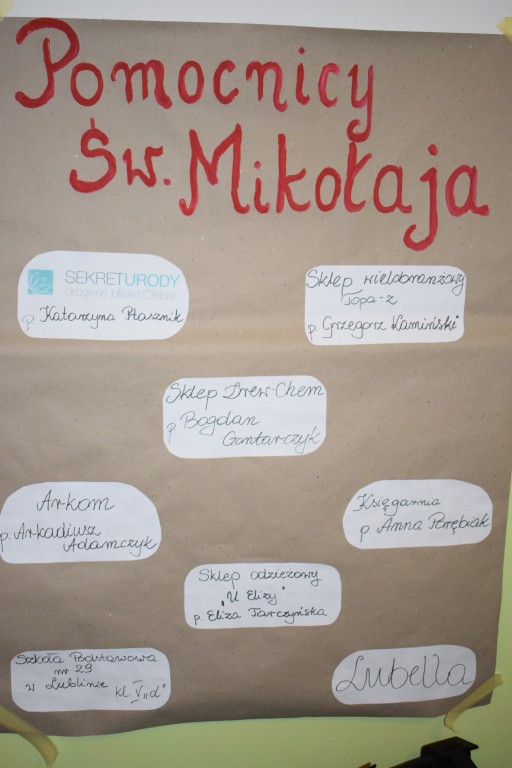 Pomocnicy
Św. Mikołaja
SEKRETURODY
drogerie blisko Ciebie
p. Katarzyna Ptasznik
Sklep wielobranżowy
Topa-z
p. Grzegorz Kamiński
Sklep Drew-Chem
p Bogdan
Gontarczyk
Arkom
p. Arkadiusz
Adamczyk
Księgarnia
p. Anna Porębiak
Sklep odzieżowy
"U Elizy"
p. Eliza Tarczyńska
Szkoła Podstawowa
nr 29
w Lublinie kl. V „d"
Lubella